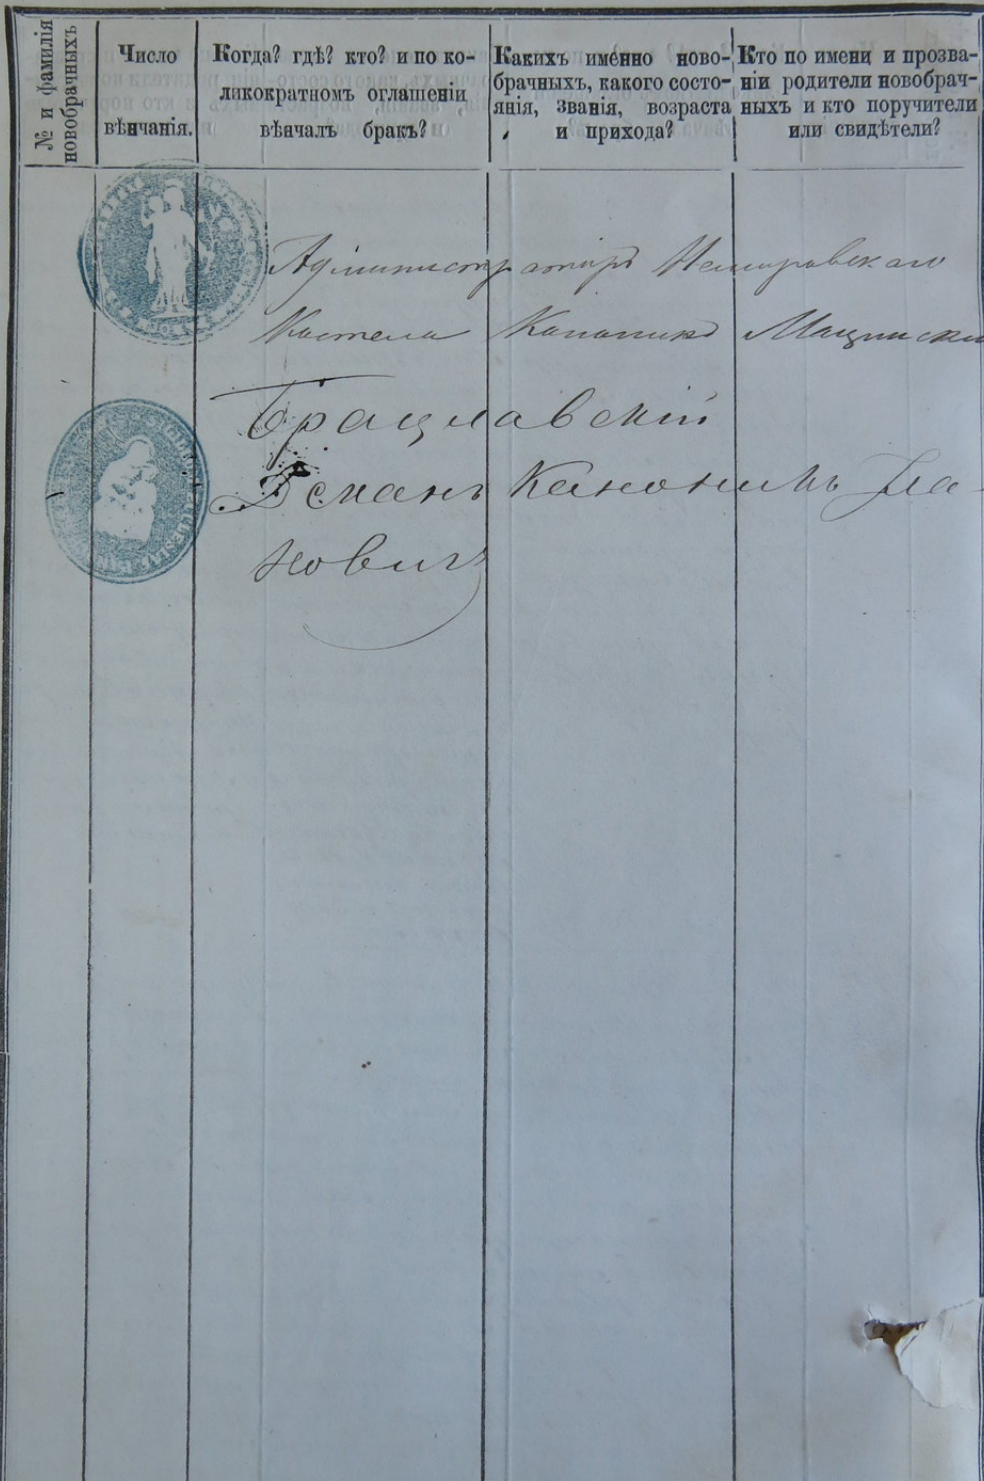 № и фамилія
новобрачныхъ
Число
вѣнчанія.
Когда? гдѣ? кто? и по ко-
ликократномъ оглашеніи
вѣнчалъ бракъ?
Каких­ъ именно ново-
брачныхъ, какого состо-
янія, званія, возраста
и прихода?
Кто по имени и прозва-
ніи родители новобрач-
ныхъ и кто поручители
или свидѣтели?
Администраторъ Немировскаго
Костела Каноникъ
Брацлавскій
Деканъ Каноникъ
новичъ